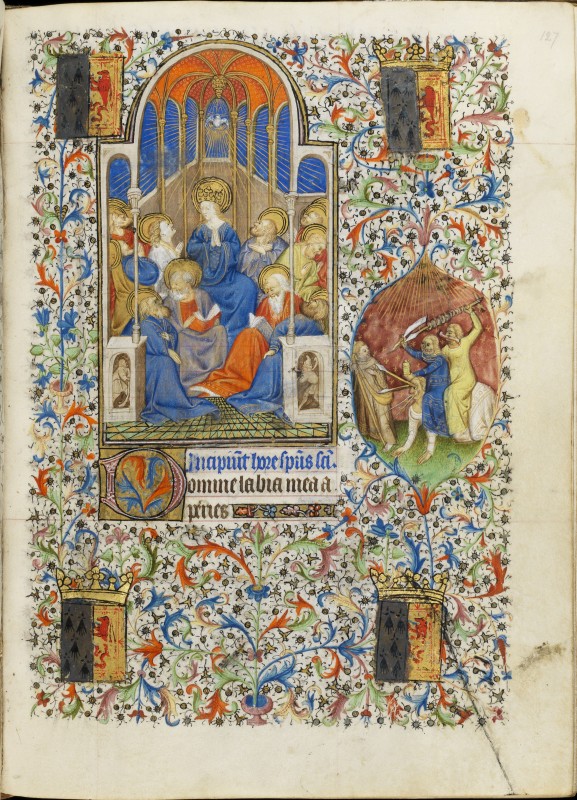 127
Incipiu͂t hore sp͂us sc͂i.
Domine labia mea a
peries